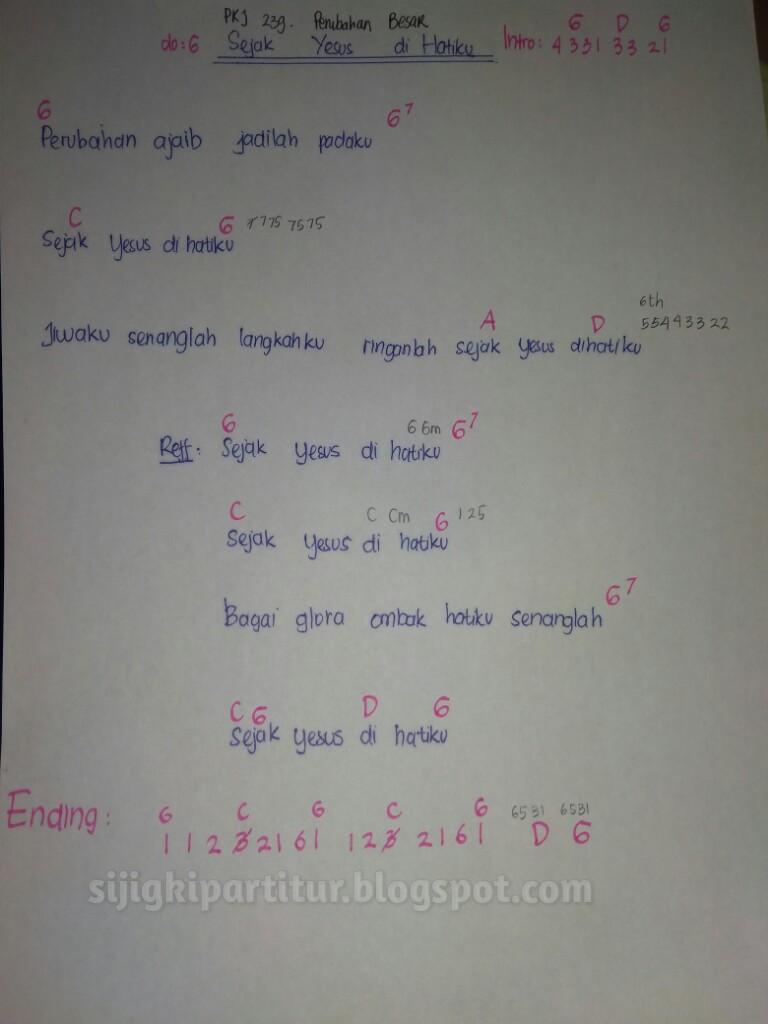 PKJ 239. Perubahan Besar
do: G Sejak Yesus di Hatiku Intro: 4 3 3 1 3 3 2 1
G D G
G G7
Perubahan ajaib jadilah padaku
C G 7775 7575
Sejak Yesus di hatiku
6th
A D 55443322
Jiwaku senanglah langkahku ringanlah sejak Yesus dihatiku
G G Gm G7
Reff: Sejak Yesus di hatiku
C C Cm G 125
Sejak Yesus di hatiku
G7
Bagai glora ombak hatiku senanglah
C G D G
Sejak Yesus di hatiku
G C G C G 6531 6531
Ending: 1 1 2 3 2 1 6 1 1 2 3 2 1 6 1 D G
sijigkipartitur.blogspot.com